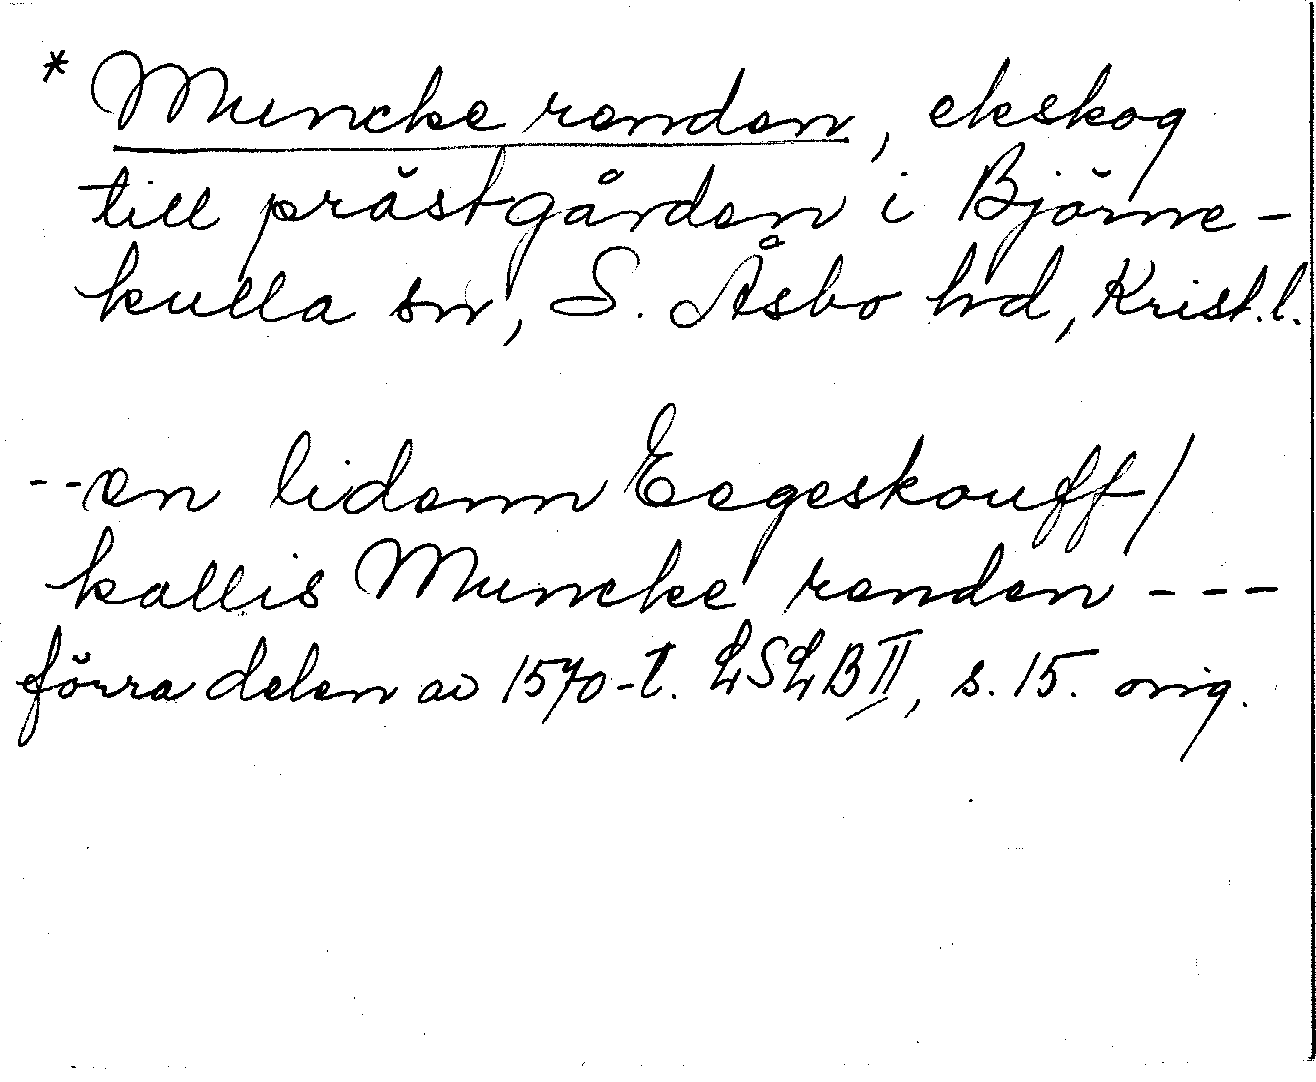 * Muncke renden, ekskog
till prästgården i Björne-
kulla sn, S. Åsbo hd, Krist.l.
--en lidenn Eegeskouff/
kallis Muncke renden ---
förra delen av 1570-t. LSLB II, s. 15. orig.